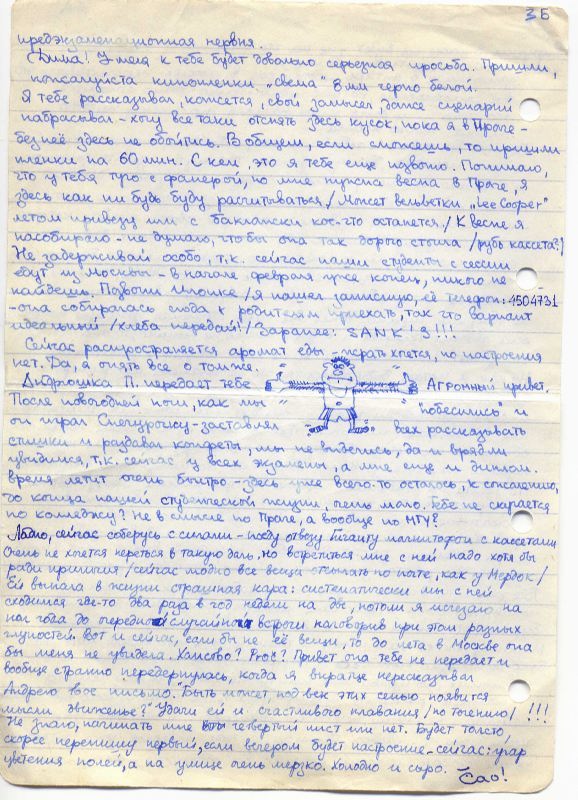 3Б
предэкзаменационная нервня.
Дима! У меня к тебе будет довольно серьезная просьба. Пришли,
пожалуйста кинопленки „Свема" 8 мм черно белой.
Я тебе рассказывал, кажется, свой замысел, даже сценарий
набрасывал - хочу все таки отснять здесь кусок, пока я в Праге -
без неё здесь не обойтись. В общем, если сможешь, то пришли
пленки на 60 мин. С кем, это я тебе еще позвоню. Понимаю,
что у тебя туго с фанерой, но мне нужна весна в Праге, я
здесь как ни будь буду расчитываться / Может вельветки „Lee Cooper"
летом привезу или с баклански кое-что останется. / К весне я
насобираю - не думаю, что бы она так дорого стоила / рубь кассета? /
Не задерживай особо, т.к. сейчас наши студенты с сессии
едут из Москвы - в начале февраля уже конец, никого не
найдешь. Позвони Илонке / Я нашел записную, её телефон: 1504731
- она собиралась сюда к родителям приехать, так что вариант
идеальный / хлеба передай! / Заранее: SANK! 9!!!
Сейчас распространяется аромат еды - жрать хочется, но настроения
нет. Да, я опять все о том же.
Андрюшка П. передает тебе Агромный привет.
После новогодней ночи, как мы "побесились" и
он играл Снегурочку - заставлял всех рассказывать
стишки и раздавал конфеты, мы не виделись, да и врядли
увидимся, т.к. сейчас у всех экзамены, а мне еще и диплом.
Время летит очень быстро - здесь уже всего-то осталось, к сожалению,
до конца нашей студенческой жизни, очень мало. Тебе не скучается
по колледжу? Не в смысле по Праге, а вообще по МГУ?
Ладно, сейчас соберусь с силами - поеду отвезу магнитофон с кассетами
Очень не хочется переться в такую даль, но встретиться мне с ней надо хотя бы
ради приличия / сейчас модно все вещи отсылать по почте, как у Мердок /
Ей выпала в жизни страшная кара: систематически мы с ней
сходимся где-то два раза в год недели на две, потом я исчезаю на
пол года до очередной случайной встречи наговорив при этом разных
глупостей. Вот и сейчас, если бы не её вещи, то до лета в Москве она
бы меня не увидела. Хамство? Proč? Привет она тебе не передает и
вообще странно передернулась, когда я вкратце пересказывал
Андрею твое письмо. "Быть может под век этих сенью появится
мысли движенье?" Удачи ей и счастливого плавания / по течению / !!!
Не знаю, начинать мне четвертый лист или нет. Будет толсто,
скорее перепишу первый, если вечером будет настроение - сейчас: угар
цветения полей, а на улице очень мерзко. Холодно и сыро.
Čao!